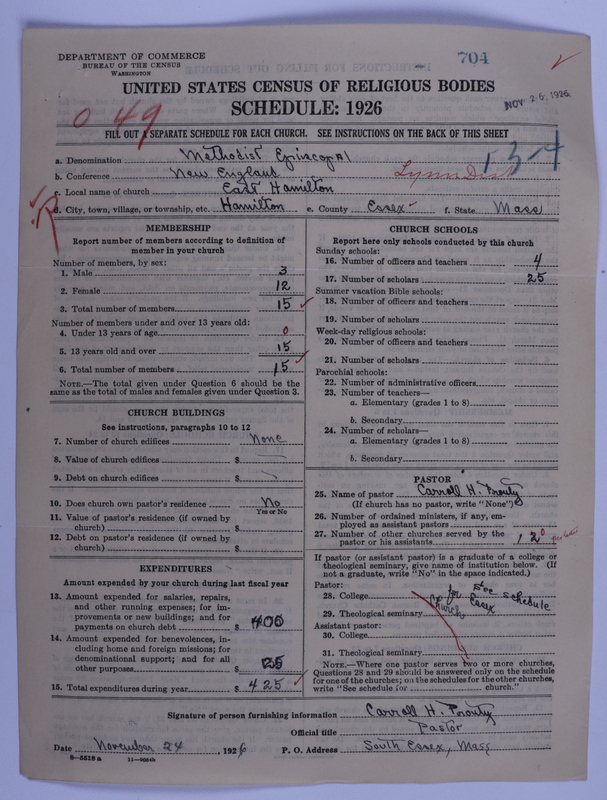 DEPARTMENT OF COMMERCE
BUREAU OF THE CENSUS
WASHINGTON
704
UNITED STATES CENSUS OF RELIGIOUS BODIES
SCHEDULE: 1926
NOV 26 1926
0 49
FILL OUT A SEPARATE SCHEDULE FOR EACH CHURCH. SEE INSTRUCTIONS ON THE BACK OF THIS SHEET
a. Denomination Methodist Episcopal
13-4
b. Conference New England Lynn Dist
c. Local name of church East Hamilton
d. City, town, village, or township, etc. Hamilton e. County Essex f. State Mass
R
MEMBERSHIP
Report number of members according to definition of
member in your church
Number of members, by sex:
1. Male 3
2. Female 12
3. Total number of members 15
Number of members under and over 13 years old:
4. Under 13 years of age 0
5. 13 years old and over 15
6. Total number of members 15
NOTE.—The total given under Question 6 should be the
same as the total of males and females given under Question 3.
CHURCH BUILDINGS
See instructions, paragraphs 10 to 12
7. Number of church edifices None
8. Value of church edifices $
9. Debt on church edifices $
10. Does church own pastor's residence No
Yes or No
11. Value of pastor's residence (if owned by
church) $
12. Debt on pastor's residence (if owned by
church) $
EXPENDITURES
Amount expended by your church during last fiscal year
13. Amount expended for salaries, repairs,
and other running expenses; for im-
provements or new buildings; and for
payments on church debt $ 400
14. Amount expended for benevolences, in-
cluding home and foreign missions; for
denominational support; and for all
other purposes $ 25
15. Total expenditures during year $ 425
CHURCH SCHOOLS
Report here only schools conducted by this church
Sunday schools:
16. Number of officers and teachers 4
17. Number of scholars 25
Summer vacation Bible schools:
18. Number of officers and teachers
19. Number of scholars
Week-day religious schools:
20. Number of officers and teachers
21. Number of scholars
Parochial schools:
22. Number of administrative officers
23. Number of teachers—
a. Elementary (grades 1 to 8)
b. Secondary
24. Number of scholars—
a. Elementary (grades 1 to 8)
b. Secondary
PASTOR
25. Name of pastor Carroll H. Prouty
(If church has no pastor, write "None")
26. Number of ordained ministers, if any, em-
ployed as assistant pastors
27. Number of other churches served by the
pastor or his assistants 1
If pastor (or assistant pastor) is a graduate of a college or
theological seminary, give name of institution below. (If
not a graduate, write "No" in the space indicated.)
Pastor:
28. College See schedule
29. Theological seminary for Essex Church
Assistant pastor:
30. College
31. Theological seminary
NOTE.—Where one pastor serves two or more churches,
Questions 28 and 29 should be answered only on the schedule
for one of the churches; on the schedules for the other churches,
write "See schedule for church."
Signature of person furnishing information Carroll H. Prouty
Official title Pastor
Date November 24, 1926 P. O. Address South Essex, Mass
8—5518a 11—9054b